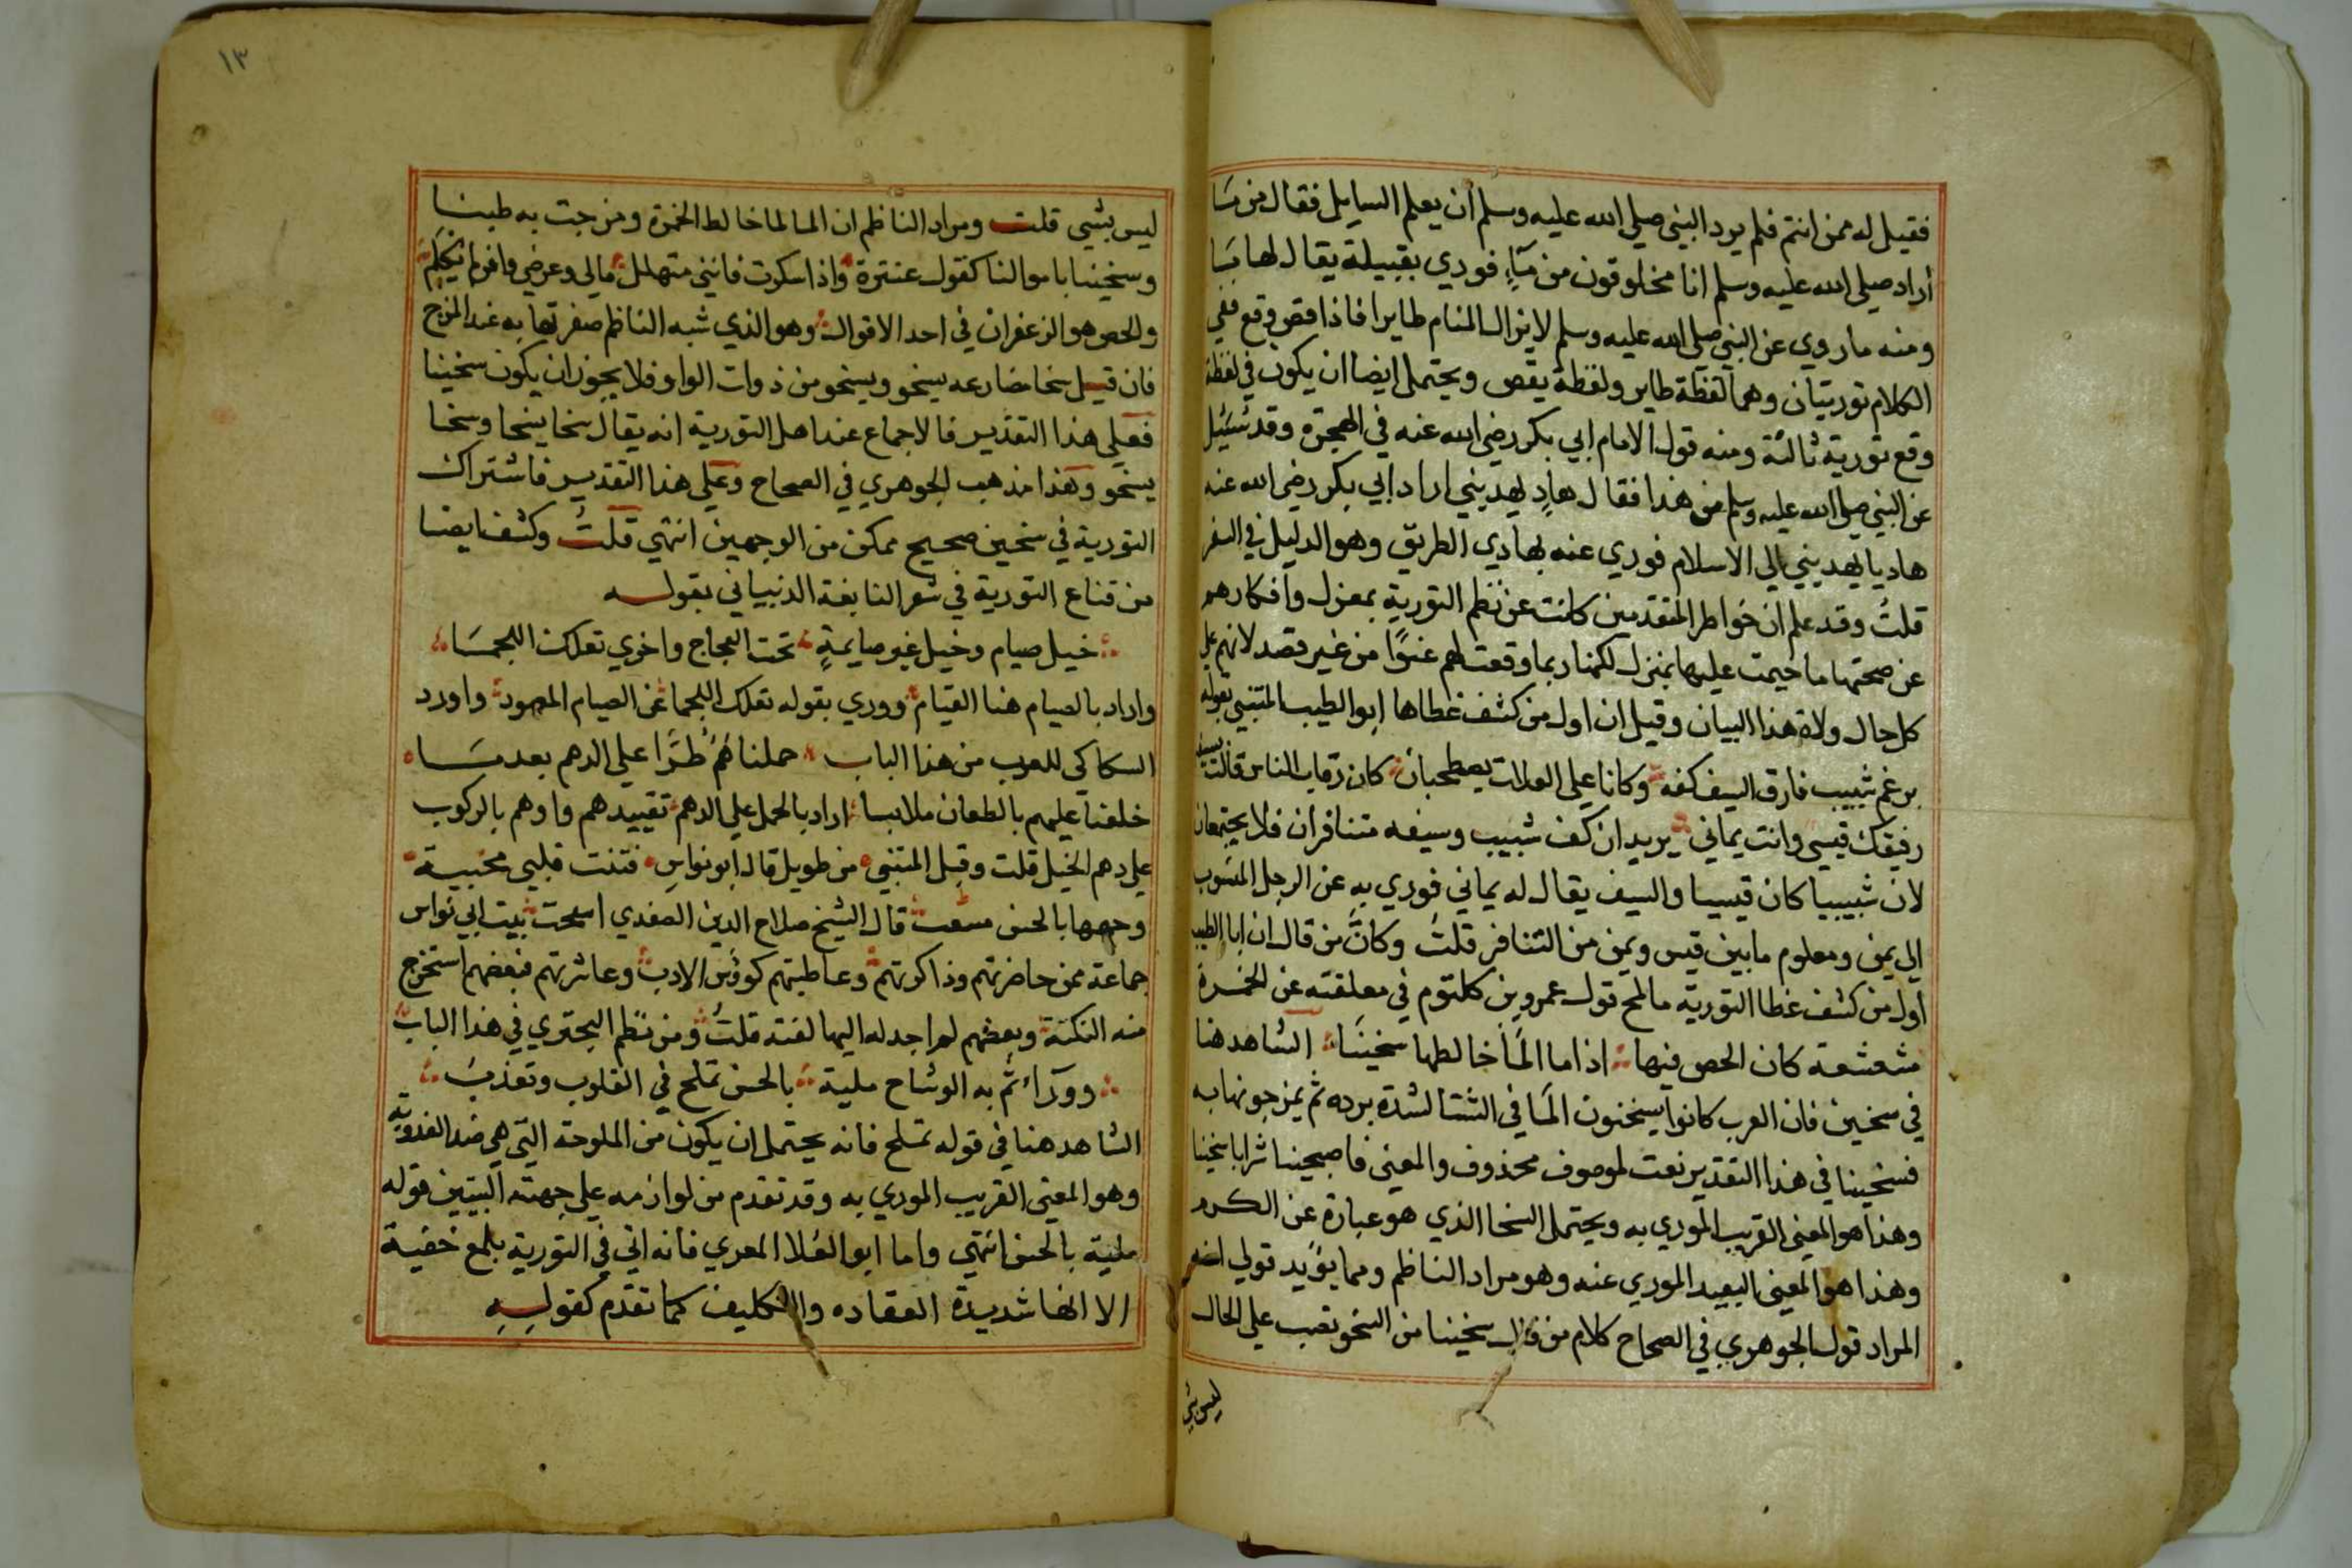 فقيل له ممن انتم فلم يرد النبي صلي الله عليه وسلم أن يعلم السايل فقال من مَا
أراد صلي الله عليه وسلم انا مخلوقون من مَآءٍ فوري بقبيلة يقال لها مَا
ومنه ما روي عن النبي صلي الله عليه وسلم لا يزال المنام طايرا فاذا قص وقع ففي
الكلام توريتان وهما لفظة طاير ولفظة يقص ويحتمل ايضا ان يكون في لفظة
وقع تورية ثالثة ومنه قول الامام ابي بكر رضي الله عنه في الهجرة وقد سُئيل
عن النبي صلي الله عليه وسلم من هذا فقال هادٍ يهديني اراد ابي بكر رضي الله عنه
هاديا يهديني الي الاسلام فوري عنه بهادي الطريق وهو الدليل في السفر
قلتُ وقد علم ان خواطر المتقدمين كانت عن نظم التورية بمعزل وافكارهم
عن صحتها ما خيمت عليها بمنزل لكنها ربما وقعت لهم عنوًا من غير قصد لانهم علي
كل حال ولاة هذا البيان وقيل ان اول من كشف غطاها ابو الطيب المتنبي بقوله
برغم شبيب فارق السيف كفه وكانا علي العلات يصطحبان كان رقاب الناس قالت لسيفه
رفيقك قيسي وانت يماني يريد ان كف شبيب وسيفه متنافران فلا يجتمعان
لان شبيبيا كان قيسيا والسيف يقال له يماني فوري به عن الرجل المنسوب
الي يمن ومعلوم مابين قيس ويمن من التنافر قلتُ وكانَّ من قال ان ابا الطيب
اول من كشف غطا التورية ما لمح قول عمرو بن كلتوم في معلقته عن الخمرة
مشعشعة كان الحص فيها اذا ما المَا خالطها سخينَا الشاهد هنا
في سخين فان العرب كانوا يسخنون المَا في الشتا لشدة برده ثم يمزجونها به
فسخينا في هذا التقدير نعت لموصوف محذوف والمعني فاصبحينا شرابا سخينا
وهذا هو المعني القريب الموري به ويحتمل السخا الذي هو عبارة عن الكرم
وهذا هو المعني البعيد الموري عنه وهو مراد الناظم ومما يؤيد قولي انه
المراد قول الجوهري في الصحاح كلام من قال سخينا من السخو نصب علي الحال
ليس بشي
١٣
ليس بشيي قلت ومراد الناظم ان الما لما خالط الخمرة ومزجت به طبنا
وسخينا باموالنا كقول عنترة واذا سكرت فانني متهلل مالي وعرضي وافر لم يكلم
والحص هو الزعفران في احد الاقوال وهو الذي شبه الناظم صفرتها به عند المزج
فان قيل سخا مضارعه يسخو ويسخو من ذوات الواو فلا يجوز ان يكون سخينا
فعلي هذا التقدير فالاجماع عند اهل التورية انه يقال سخا يسخا وسخا
يسخو وهذا مذهب الجوهري في الصحاح وعلي هذا التقدير فاشتراك
التورية في سخين صحيح ممكن من الوجهين انتهي قلتُ وكشف ايضا
من قناع التورية في شعر النابغة الذبياني بقوله
خيل صيام وخيل غير صايمةٍ تحت العجاج واخري تعلك اللجمَا
واراد بالصيام هنا القيام ووري بقوله تعلك اللجما عن الصيام المعهود واورد
السكاكي للعرب من هذا الباب حملناهُمُ طُرًّا علي الدهم بعد مَا
خلعنا عليهم بالطعان ملابسا اراد بالحمل علي الدهم تقييدهم واوهم بالركوب
علي دهم الخيل قلت وقبل المتنبي من طويل قال ابو نواس فتنت قلبي محببة
وجهها بالحسن منتقب قال الشيخ صلاح الدين الصفدي امتحت بيت ابي نواس
جماعة ممن حاضرتهم وذاكرتهم وعاطيتهم كوؤس الادب وعاشرتهم فبعضهم استخرج
منه النكتة وبعضهم لم اجد له اليها لفتة قلتُ ومن نظم البحتري في هذا الباب
وورآء ثم به الوشاح ملية بالحسن تملح في القلوب وتعذبَ
الشاهد هنا في قوله تملح فانه يحتمل ان يكون من الملوحة التي هي ضد العذوبة
وهو المعني القريب الموري به وقد تقدم من لوازمه علي جهته التبيين قوله
ملية بالحسن انتهي واما ابو العُلا المعري فانه اتي في التورية بلمع خفية
الا انها شديدة العقاده والتكليف كما تقدم كقولِهِ